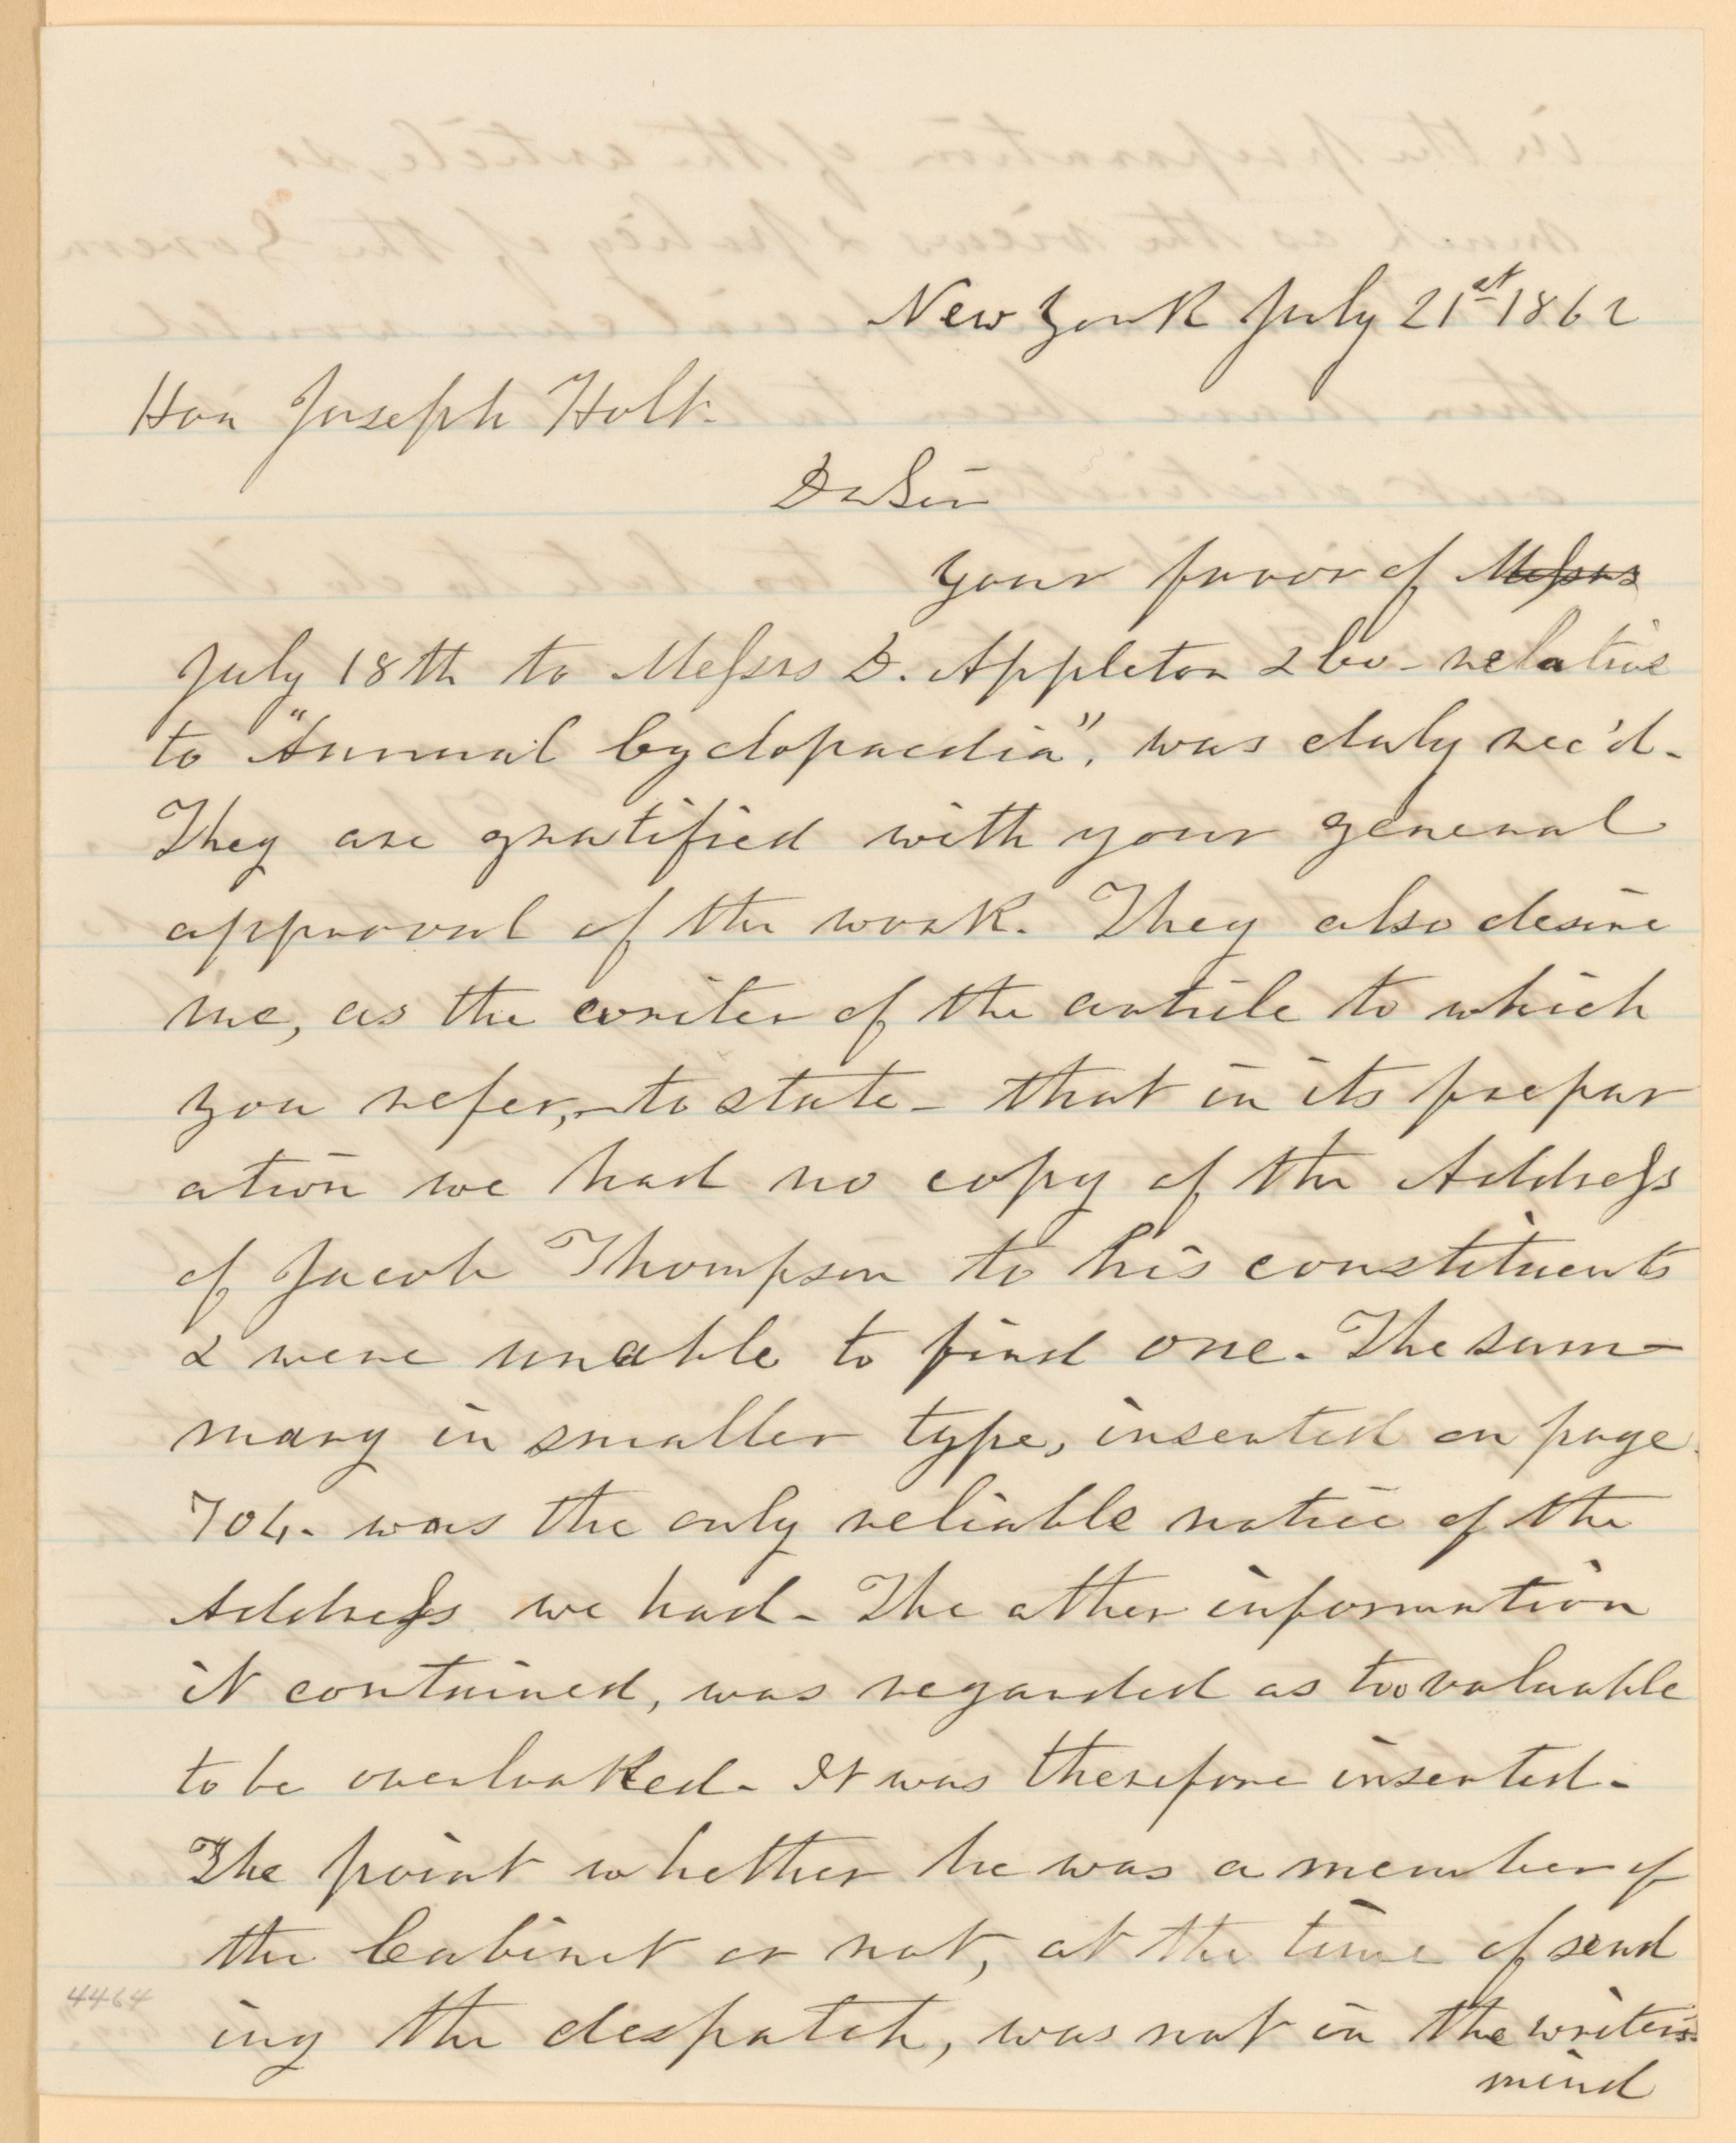 New York July 21st 1862
Hon Joseph Holt.
Dr Sir
Your favor of Messrs
July 18th to Messrs D. Appleton & Co - relative
to "Annual Cyclopaedia", was duly rec'd -
They are gratified with your general
approval of the work. They also desire
me, as the writer of the article to which
you refer, - to state - that in its prepar
ation we had no copy of the Address
of Jacob Thompson to his constituents
& were unable to find one. The sum-
mary in smaller type, inserted on page
704 - was the only reliable notice of the
Address we had - The other information
it contained, was regarded as too valuable
to be overlooked - It was therefore inserted -
The point whether he was a member of
the Cabinet or not, at the time of send
ing the despatch, was not in the writers
mind
4464